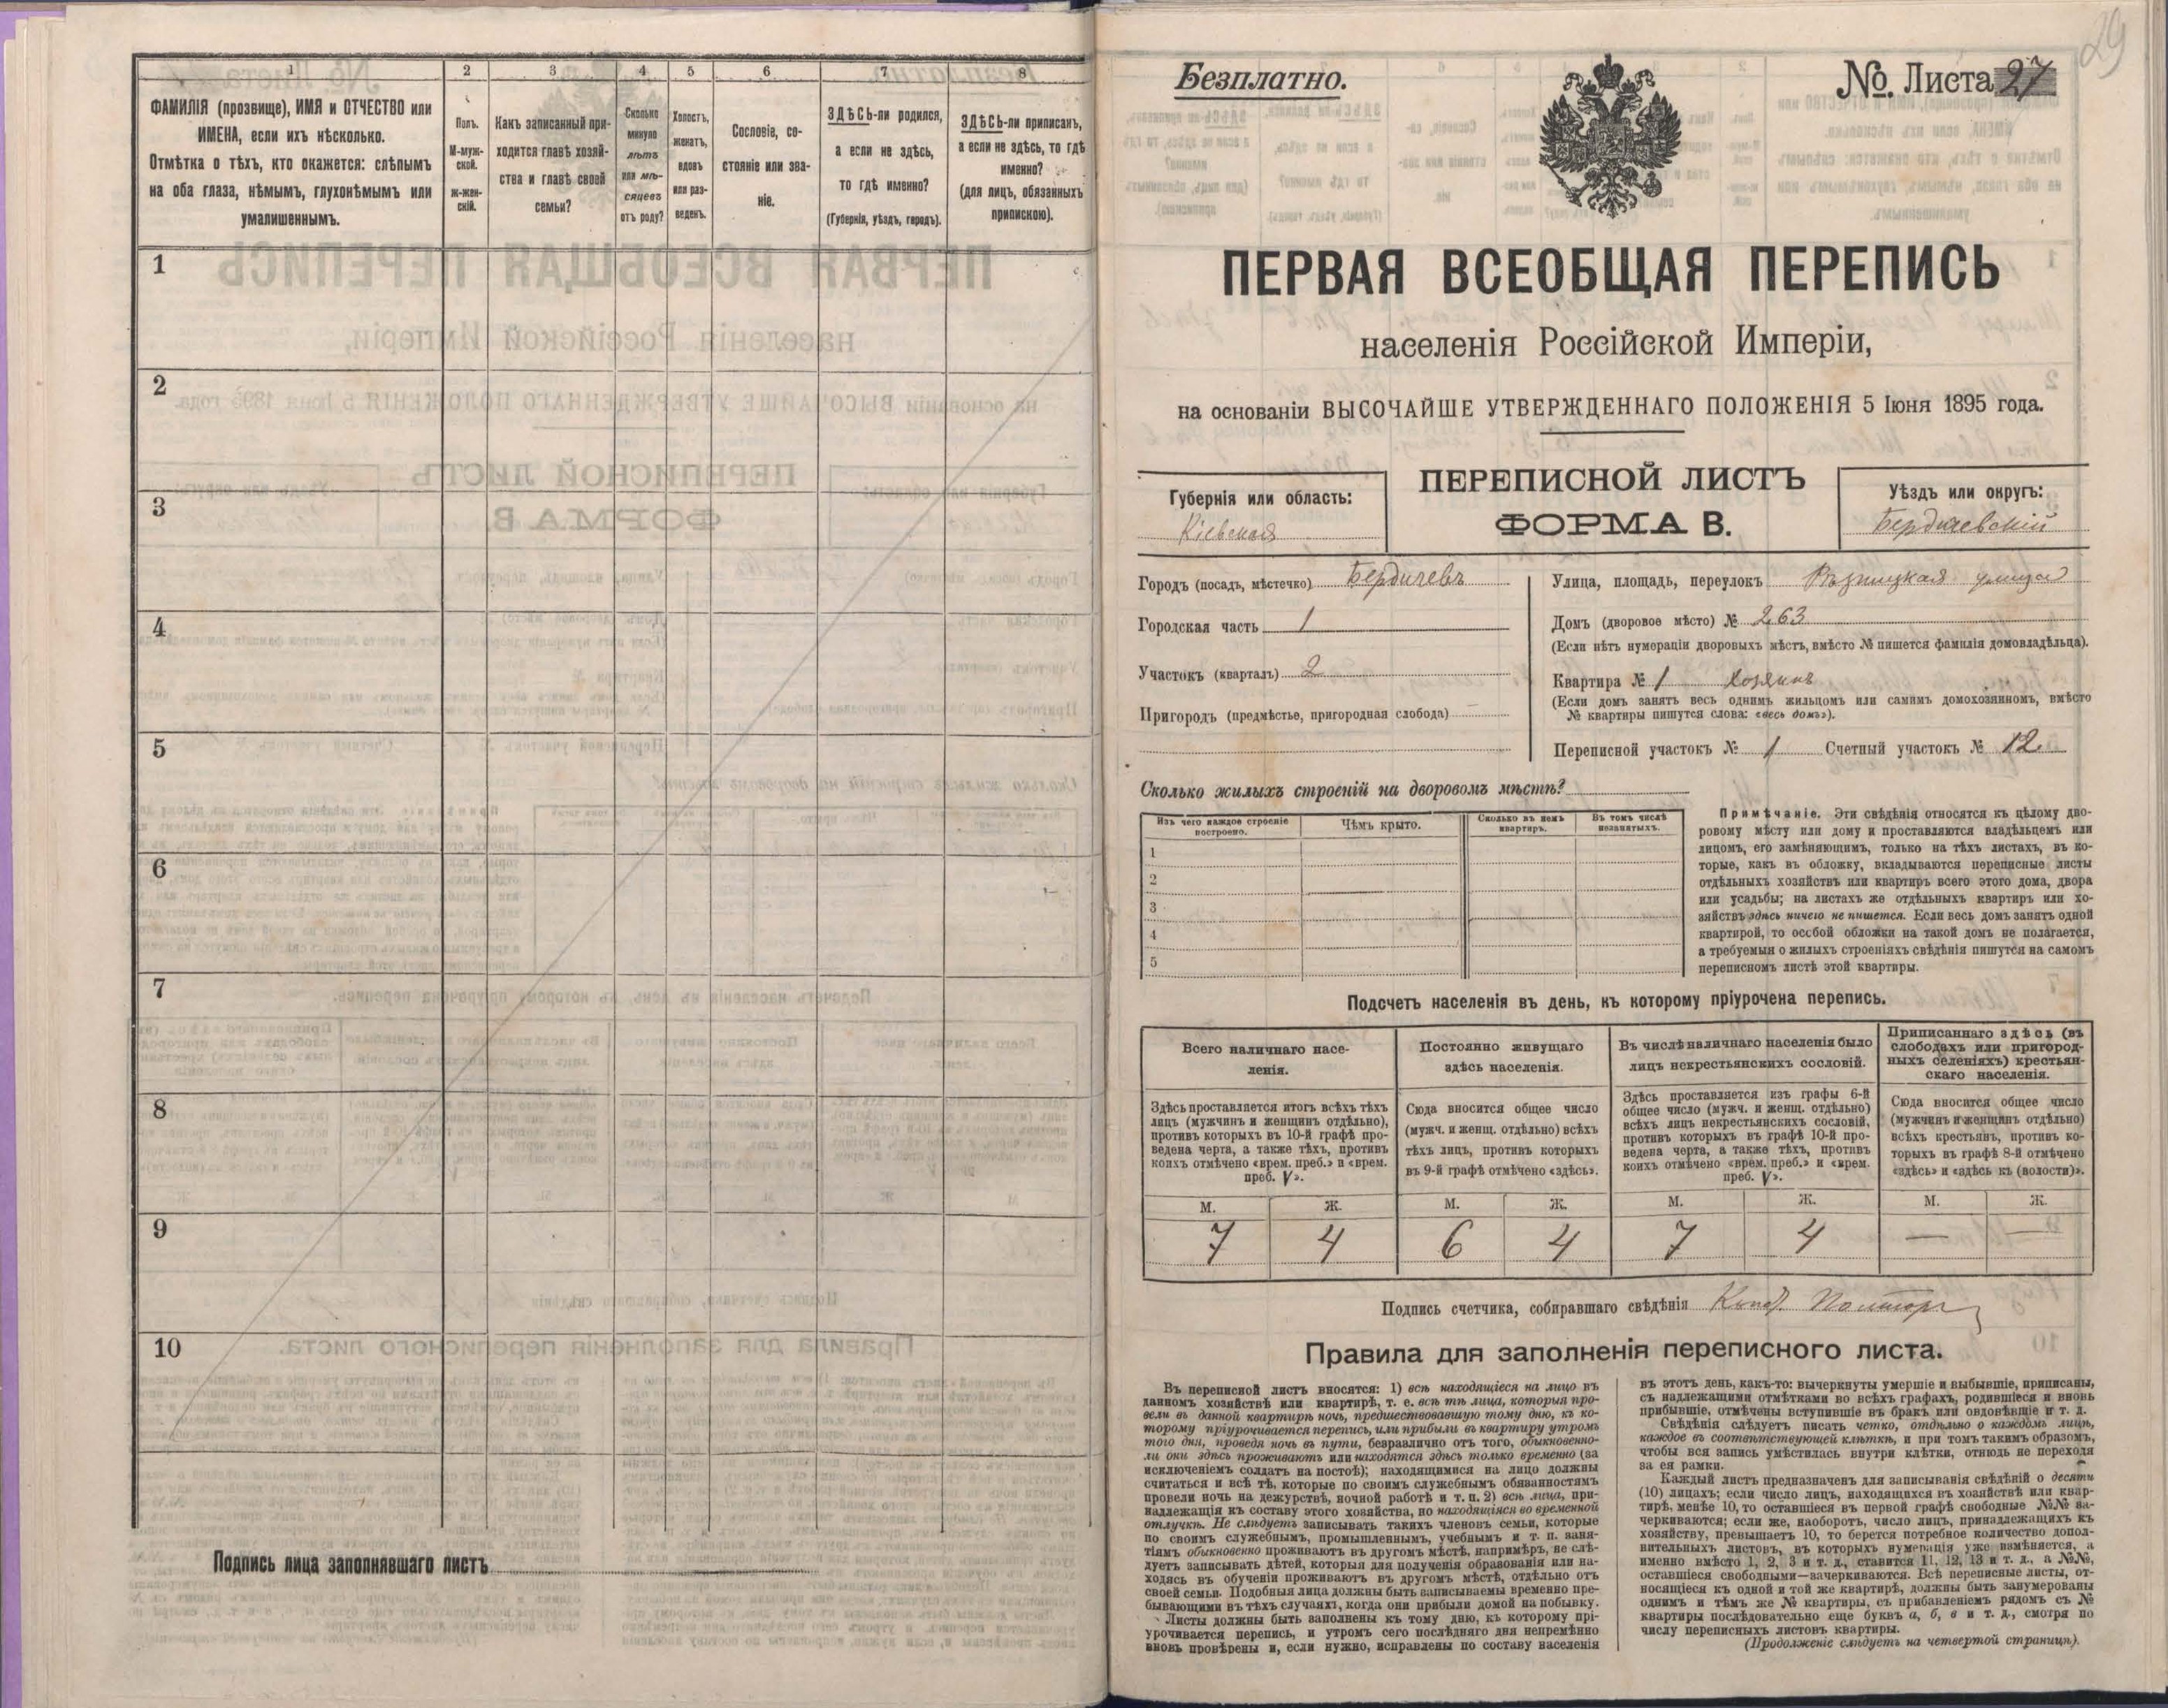 1
2
3
4
5
6
7
8
ФАМИЛІЯ (прозвище), ИМЯ и ОТЧЕСТВО или
ИМЕНА, если ихъ нѣсколько.
Отмѣтка о тѣхъ, кто окажется: слѣпымъ
на оба глаза, нѣмымъ, глухонѣмымъ или
умалишеннымъ.
Полъ.
М-муж-
ской.
Ж-жен-
скій.
Какъ записанный при-
ходится главѣ хозяй-
ства и главѣ своей
семьи?
Сколько
минуло
лѣтъ
или мѣ-
сяцевъ
отъ роду?
Холостъ,
женатъ,
вдовъ
или раз-
веденъ.
Сословіе, со-
стояніе или зва-
ніе.
ЗДѢСЬ-ли родился,
а если не здѣсь,
то гдѣ именно?
(Губернія, уѣздъ, городъ).
ЗДѢСЬ-ли приписанъ,
а если не здѣсь, то гдѣ
именно?
(для лицъ, обязанныхъ
припискою).
1
2
3
4
5
6
7
8
9
10
Подпись лица заполнявшаго листъ
29
Безплатно.
№. Листа 27
ПЕРВАЯ ВСЕОБЩАЯ ПЕРЕПИСЬ
населенія Россійской Имперіи,
на основаніи ВЫСОЧАЙШЕ УТВЕРЖДЕННАГО ПОЛОЖЕНІЯ 5 Іюня 1895 года.
Губернія или область:
Кіевская
ПЕРЕПИСНОЙ ЛИСТЪ
ФОРМА В.
Уѣздъ или округъ:
Бердичевскій
Городъ (посадъ, мѣстечко) Бердичевъ
Городская часть 1
Участокъ (кварталъ) 2
Пригородъ (предмѣстье, пригородная слобода)
Улица, площадь, переулокъ улица
Домъ (дворовое мѣсто) № 263
(Если нѣтъ нумераціи дворовыхъ мѣстъ, вмѣсто № пишется фамилія домовладѣльца).
Квартира № 1 Хозяинъ
(Если домъ занятъ весь однимъ жильцомъ или самимъ домохозяиномъ, вмѣсто
№ квартиры пишутся слова: «весь домъ»).
Переписной участокъ № 1 Счетный участокъ № 12
Сколько жилыхъ строеній на дворовомъ мѣстѣ?
Изъ чего каждое строеніе
построено.
Чѣмъ крыто.
Сколько въ немъ
квартиръ.
Въ томъ числѣ
незанятыхъ.
1
2
3
4
5
Примѣчаніе. Эти свѣдѣнія относятся къ цѣлому дво-
ровому мѣсту или дому и проставляются владѣльцемъ или
лицомъ, его замѣняющимъ, только на тѣхъ листахъ, въ ко-
торые, какъ въ обложку, вкладываются переписные листы
отдѣльныхъ хозяйствъ или квартиръ всего этого дома, двора
или усадьбы; на листахъ же отдѣльныхъ квартиръ или хо-
зяйствъ здѣсь ничего не пишется. Если весь домъ занятъ одной
квартирой, то особой обложки на такой домъ не полагается,
а требуемыя о жилыхъ строеніяхъ свѣдѣнія пишутся на самомъ
переписномъ листѣ этой квартиры.
Подсчетъ населенія въ день, къ которому пріурочена перепись.
Всего наличнаго насе-
ленія.
Здѣсь проставляется итогъ всѣхъ тѣхъ
лицъ (мужчинъ и женщинъ отдѣльно),
противъ которыхъ въ 10-й графѣ про-
ведена черта, а также тѣхъ, противъ
коихъ отмѣчено «врем. преб.» и «врем.
преб. V».
Постоянно живущаго
здѣсь населенія.
Сюда вносится общее число
(мужч. и женщ. отдѣльно) всѣхъ
тѣхъ лицъ, противъ которыхъ
въ 9-й графѣ отмѣчено «здѣсь».
Въ числѣ наличнаго населенія было
лицъ некрестьянскихъ сословій.
Здѣсь проставляется изъ графы 6-й
общее число (мужч. и женщ. отдѣльно)
всѣхъ лицъ некрестьянскихъ сословій,
противъ которыхъ въ графѣ 10-й про-
ведена черта, а также тѣхъ, противъ
коихъ отмѣчено «врем. преб.» и «врем.
преб. V».
Приписаннаго здѣсь (въ
слободахъ или пригород-
ныхъ селеніяхъ) крестьян-
скаго населенія.
Сюда вносится общее число
(мужчинъ и женщинъ отдѣльно)
всѣхъ крестьянъ, противъ ко-
торыхъ въ графѣ 8-й отмѣчено
«здѣсь» и «здѣсь къ (волости)».
М. Ж. М. Ж. М. Ж. М. Ж.
7 4 6 4 7 4 — —
Подпись счетчика, собиравшаго свѣдѣнія
Правила для заполненія переписного листа.
Въ переписной листъ вносятся: 1) всѣ находящіеся на лицо въ
данномъ хозяйствѣ или квартирѣ, т. е. всѣ тѣ лица, которыя про-
вели въ данной квартирѣ ночь, предшествовавшую тому дню, къ ко-
торому пріурочивается перепись, или прибыли въ квартиру утромъ
того дня, проведя ночь въ пути, безразлично отъ того, обыкновенно-
ли они здѣсь проживаютъ или находятся здѣсь только временно (за
исключеніемъ солдатъ на постоѣ); находящимися на лицо должны
считаться и всѣ тѣ, которые по своимъ служебнымъ обязанностямъ
провели ночь на дежурствѣ, ночной работѣ и т. п. 2) всѣ лица, при-
надлежащія къ составу этого хозяйства, но находящіяся во временной
отлучкѣ. Не слѣдуетъ записывать такихъ членовъ семьи, которые
по своимъ служебнымъ, промышленнымъ, учебнымъ и т. п. заня-
тіямъ обыкновенно проживаютъ въ другомъ мѣстѣ, напримѣръ, не слѣ-
дуетъ записывать дѣтей, которыя для полученія образованія или на-
ходясь въ обученіи проживаютъ въ другомъ мѣстѣ, отдѣльно отъ
своей семьи. Подобныя лица должны быть записываемы временно пре-
бывающими въ тѣхъ случаяхъ, когда они прибыли домой на побывку.
Листы должны быть заполнены къ тому дню, къ которому прі-
урочивается перепись, и утромъ сего послѣдняго дня непремѣнно
вновь провѣрены и, если нужно, исправлены по составу населенія
въ этотъ день, какъ-то: вычеркнуты умершіе и выбывшіе, приписаны,
съ надлежащими отмѣтками во всѣхъ графахъ, родившіеся и вновь
прибывшіе, отмѣчены вступившіе въ бракъ или овдовѣвшіе и т. д.
Свѣдѣнія слѣдуетъ писать четко, отдѣльно о каждомъ лицѣ,
каждое въ соотвѣтствующей клѣткѣ, и при томъ такимъ образомъ,
чтобы вся запись умѣстилась внутри клѣтки, отнюдь не переходя
за ея рамки.
Каждый листъ предназначенъ для записыванія свѣдѣній о десяти
(10) лицахъ; если число лицъ, находящихся въ хозяйствѣ или квар-
тирѣ, менѣе 10, то оставшіеся въ первой графѣ свободные №№ за-
черкиваются; если же, наоборотъ, число лицъ, принадлежащихъ къ
хозяйству, превышаетъ 10, то берется потребное количество допол-
нительныхъ листовъ, въ которыхъ нумерація уже измѣняется, а
именно вмѣсто 1, 2, 3 и т. д., ставится 11, 12, 13 и т. д., а №№,
оставшіеся свободными—зачеркиваются. Всѣ переписные листы, от-
носящіеся къ одной и той же квартирѣ, должны быть занумерованы
однимъ и тѣмъ же № квартиры, съ прибавленіемъ рядомъ съ №
квартиры послѣдовательно еще буквъ а, б, в и т. д., смотря по
числу переписныхъ листовъ квартиры.
(Продолженіе слѣдуетъ на четвертой страницѣ).